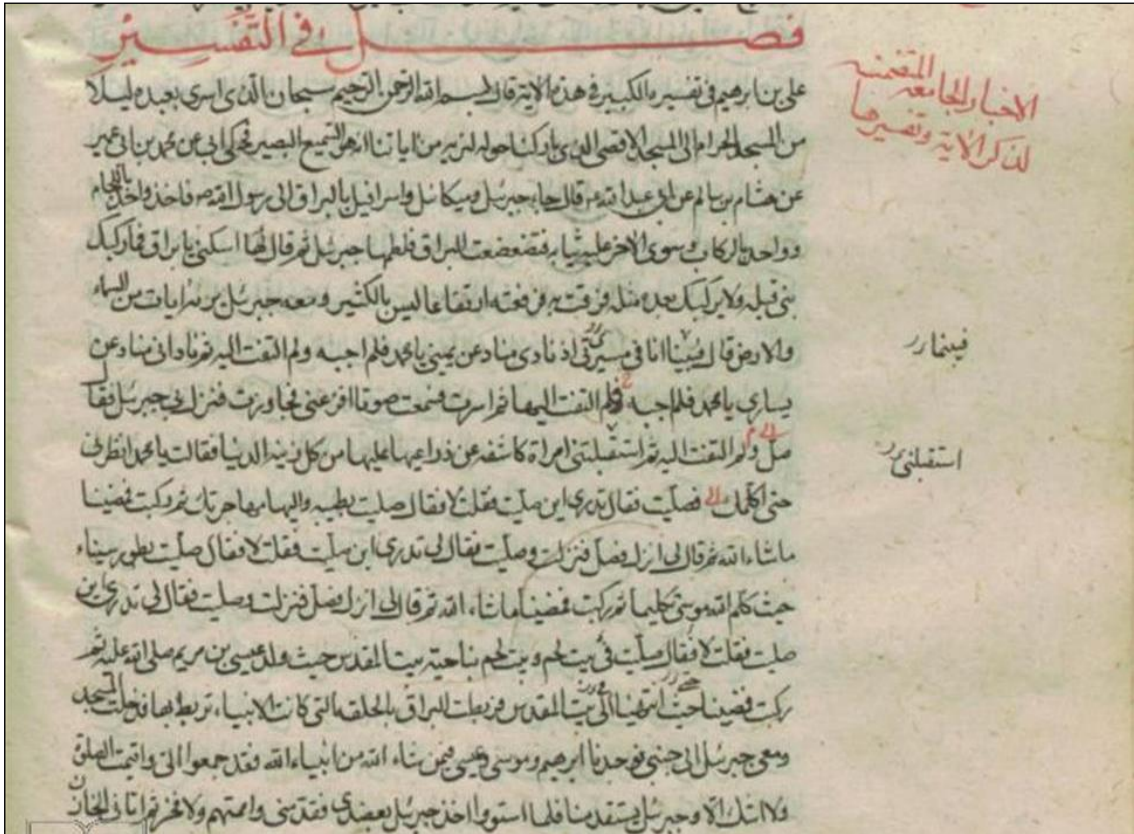 فصل في التفسير
علي بن ابرهيم في تفسيره الكبير في هذه الاية قال بسم الله الرحمن الرحيم سبحان الذي اسرى بعبده ليلا
من المسجد الحرام الى المسجد الاقصى الذي باركنا حوله لنريه من اياتنا انه هو السميع البصير فحكى ابي عن محمد بن ابي عمير
عن هشام بن سالم عن ابي عبد الله ع قال جاء جبرئيل وميكائيل واسرافيل بالبراق الى رسول الله ص فاخذ واحد باللجام
وواحد بالركاب وسوى الاخر عليه ثيابه فتضعضعت البراق فلطمها جبرئيل ثم قال لها اسكني يا براق فما ركبك
نبي قبله ولا يركبك بعده مثله فرقت به فرفعته ارتفاعا ليس بالكثير ومعه جبرئيل يريه الايات من السماء
والارض قال فبينا انا في مسيرتي اذ نادى مناد عن يميني يا محمد فلم اجبه ولم التفت اليه ثم ناداني مناد عن
يساري يا محمد فلم اجبه فلم التفت اليها ثم اسرت فسمعت صوتا افزعني فجاوزت فنزل بي جبرئيل فقال
صل ولم التفت اليه ثم استقبلتني امراة كاشفة عن ذراعيها عليها من كل زينة الدنيا فقالت يا محمد انظرني
حتى اكلمك فصليت فقال تدري اين صليت فقلت لا فقال صليت بطيبة واليها مهاجرتك ثم ركبت فمضينا
ما شاء الله ثم قال لي انزل فصل فنزلت وصليت فقال لي تدري اين صليت فقلت لا فقال صليت بطور سيناء
حيث كلم الله موسى تكليما ثم ركبت فمضينا ما شاء الله ثم قال لي انزل فصل فنزلت وصليت فقال لي تدري اين
صليت فقلت لا فقال صليت في بيت لحم وبيت لحم بناحية بيت المقدس حيث ولد عيسى بن مريم صلى الله عليه ثم
ركبت فمضينا حيث انتهينا الى بيت المقدس فربطت البراق بالحلقة التي كانت الانبياء تربط بها فدخلت المسجد
ومعي جبرئيل الى جنبي فوجدنا ابرهيم وموسى وعيسى فيمن شاء الله من انبياء الله فقد جمعوا الي واقيمت الصلوة
ولا اشك الا وجبرئيل يستقدمنا فلما استووا اخذ جبرئيل بعضدي فقدمني واممتهم ولا فخر ثم اتاني الخازن
الاخبار الجامعة المتضمنة
لذكر الاية وتفسيرها
فبينما رر
استقبلني رر